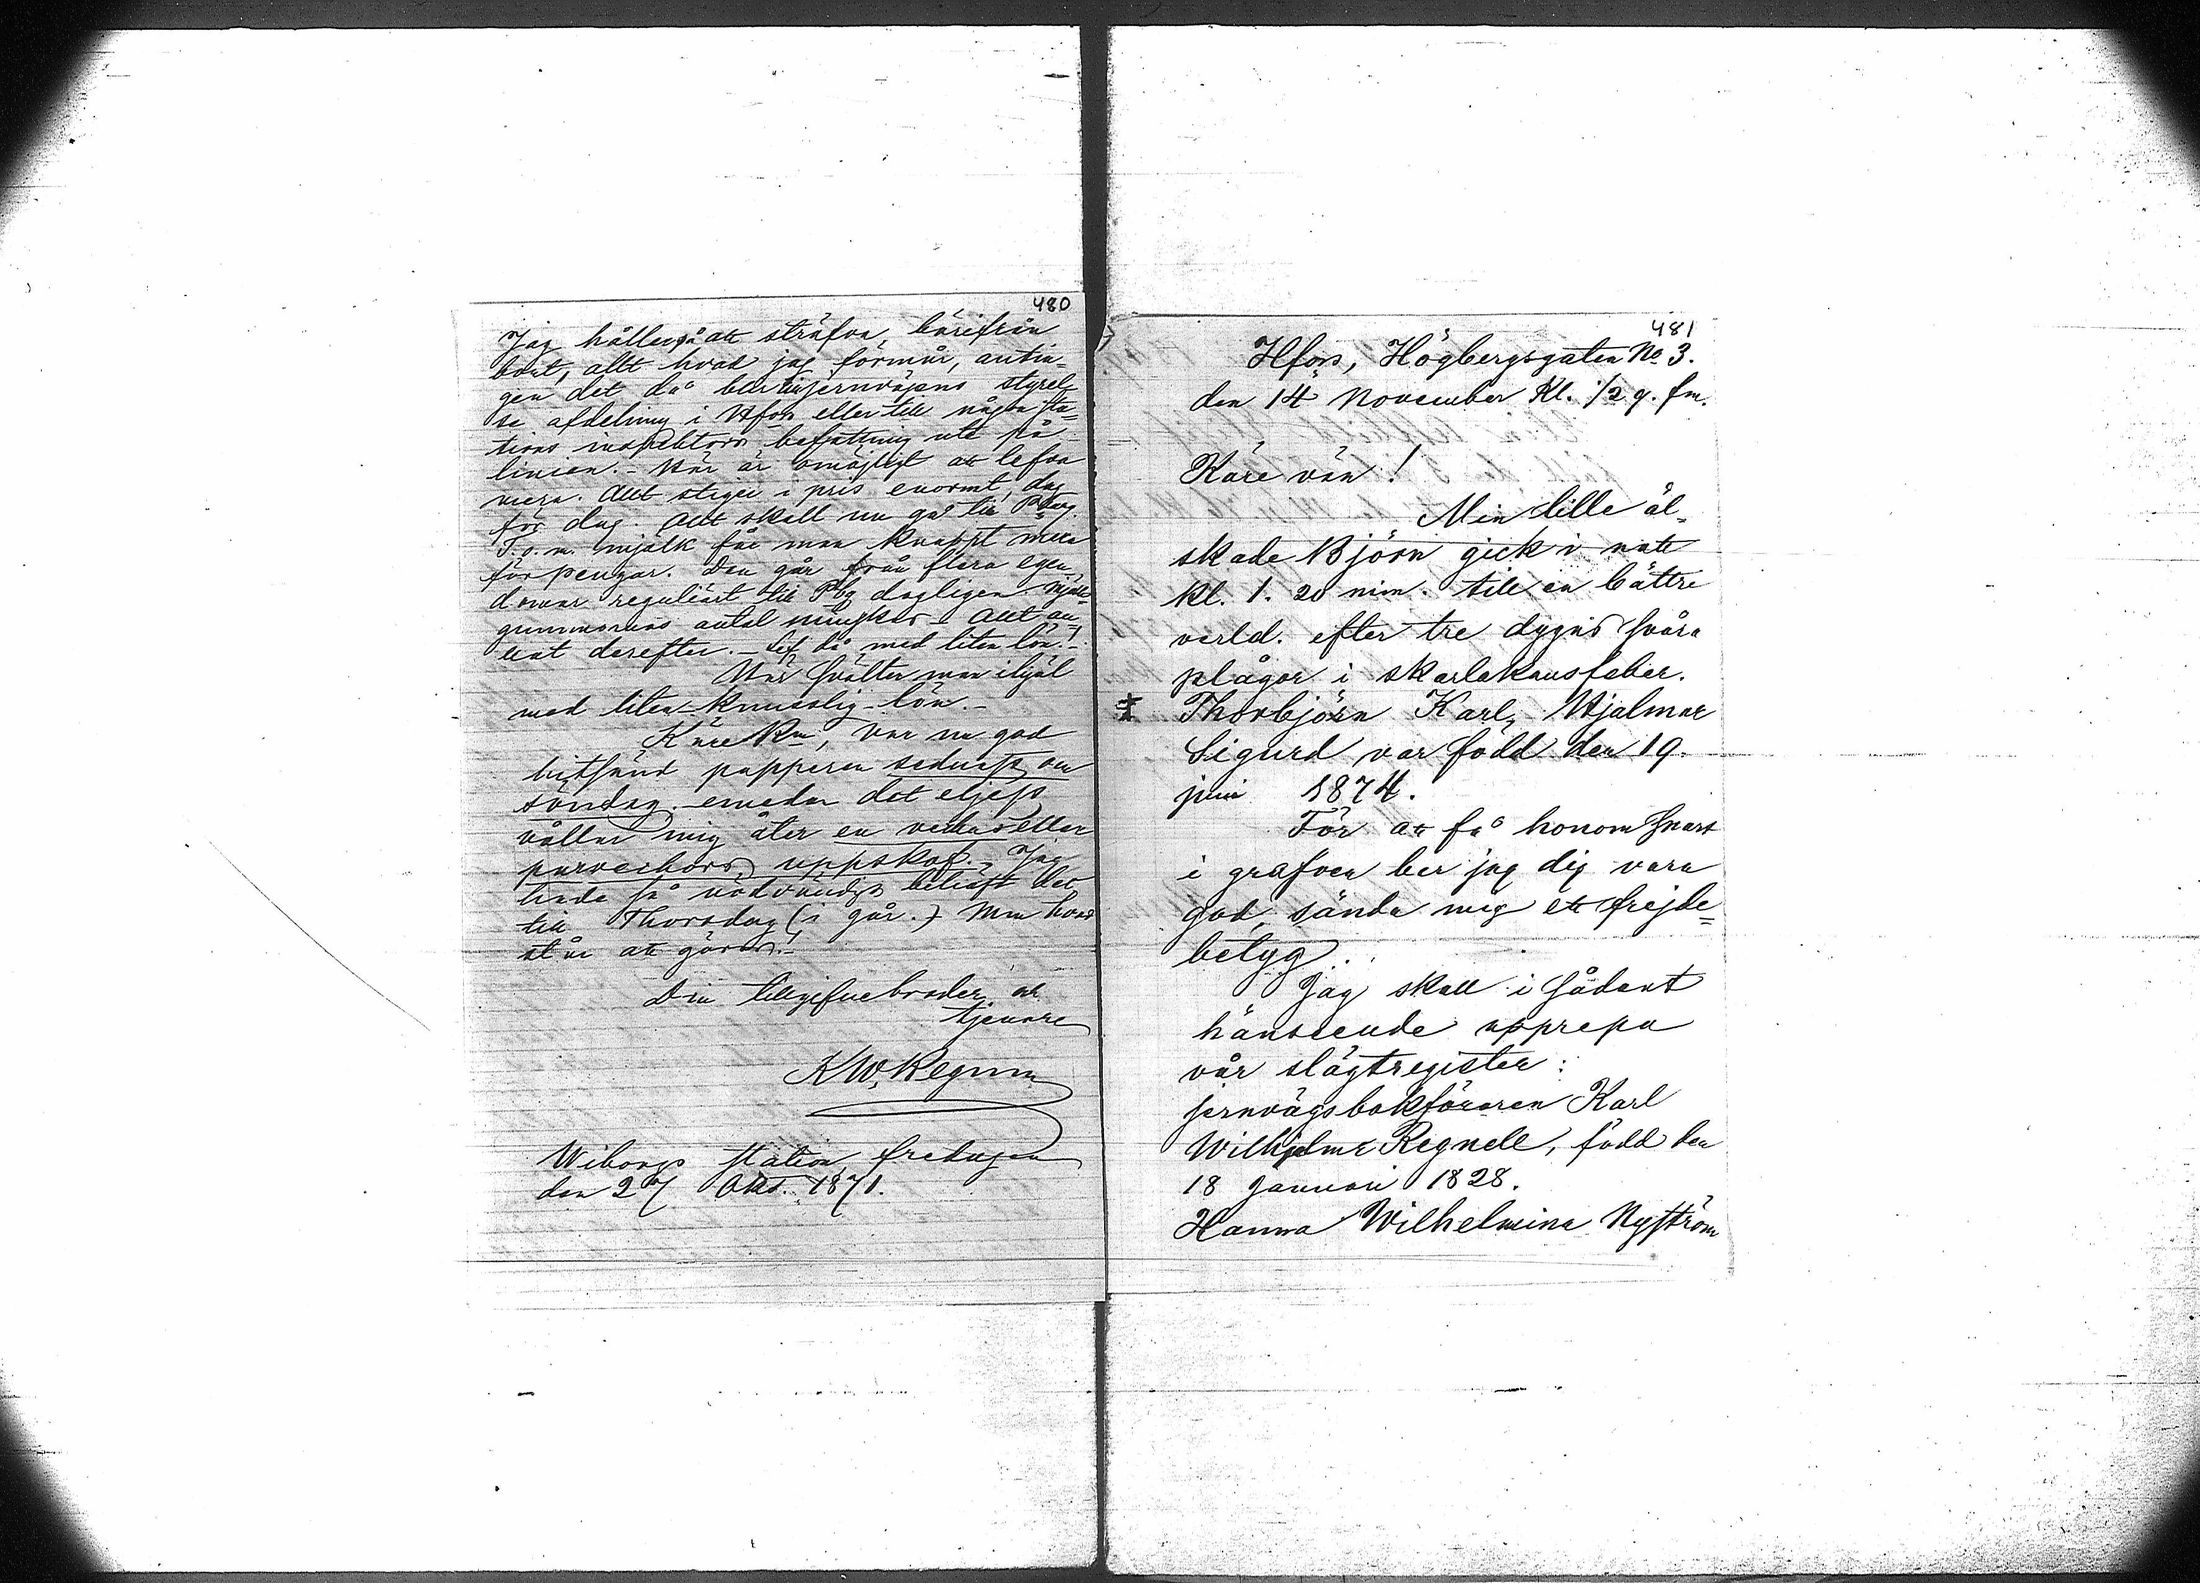 480
Jag håller på att sträfva härifrån
bort, allt hvad jag förmår, antin-
gen det då blir till jernvägens styrel-
se afdelning i Hfors eller till någon sta-
tions inspektors befattning ute på
linien. - Här är omöjligt att lefva
mera. Allt stiger i pris enormt, dag
för dag. Allt skall nu gå till Pburg.
T.o.m. mjölk får man knappt mera
för pengar. Den går från flera egen
domar reguliärt till Pbg dagligen. Mjölk-
gummornas antal minskas. - Allt an-
nat derefter. - Lef då med liten lön! -
Här svälter man ihjäl
med liten knusslig lön. -
Käre Bror, var nu god
hitsänd papperen senast om
söndag, emedan det eljest
vållar mig åter en veckas eller
parveckors uppskof. Jag
hade så nödvändigt behöft det
till Thorsdag (i går.) Men hvad
står att göras! -
Din tillgifne broder och
tjenare
KW. Regnell
Wiborgs station, fredagen
den 27 Okt. 1871.
481
Hfors, Högbergsgatan No 3.
den 14 November Kl. 1/2 9. fm.
Käre vän!
Min lille äl-
skade Björn gick i natt
kl. 1. 20 min. till en bättre
verld. efter tre dygns svåra
plågor i skarlakansfeber.
‡ Thorbjörn Karl Hjalmar
Sigurd var född den 19.
juni 1874.
För att få honom snart
i grafven ber jag dig vara
god, sända mig ett frejde-
betyg.
Jag skall i sådant
hänseende upprepa
vår slägtregister:
jernvägsbokföraren Karl
Wilhelm Regnell, född den
18 Januari 1828.
Hanna Wilhelmina Nyström